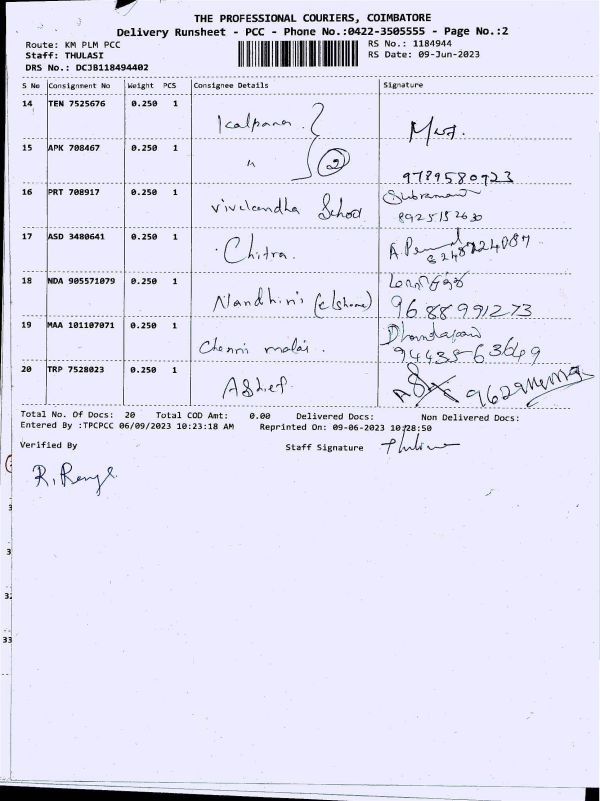 THE PROFESSIONAL COURIERS, COIMBATORE
Delivery Runsheet - PCC - Phone No.:0422-3505555 - Page No.:2
Route: KM PLM PCC RS No.: 1184944
Staff: THULASI RS Date: 09-Jun-2023
DRS No.: DCJB118494402
S No Consignment No Weight PCS Consignee Details Signature
14 TEN 7525676 0.250 1 Kalpana
15 APK 708467 0.250 1 " 2
9789580723
16 PRT 708917 0.250 1 Vivekandha School Subramani
8925152630
17 ASD 3480641 0.250 1 Chitra.
8248724087
18 NDA 905571079 0.250 1 Nandhini
9688991273
19 MAA 101107071 0.250 1 Chenni malai.
9443563649
20 TRP 7528023 0.250 1
Total No. Of Docs: 20 Total COD Amt: 0.00 Delivered Docs: Non Delivered Docs:
Entered By :TPCPCC 06/09/2023 10:23:18 AM Reprinted On: 09-06-2023 10:28:50
Verified By Staff Signature
33